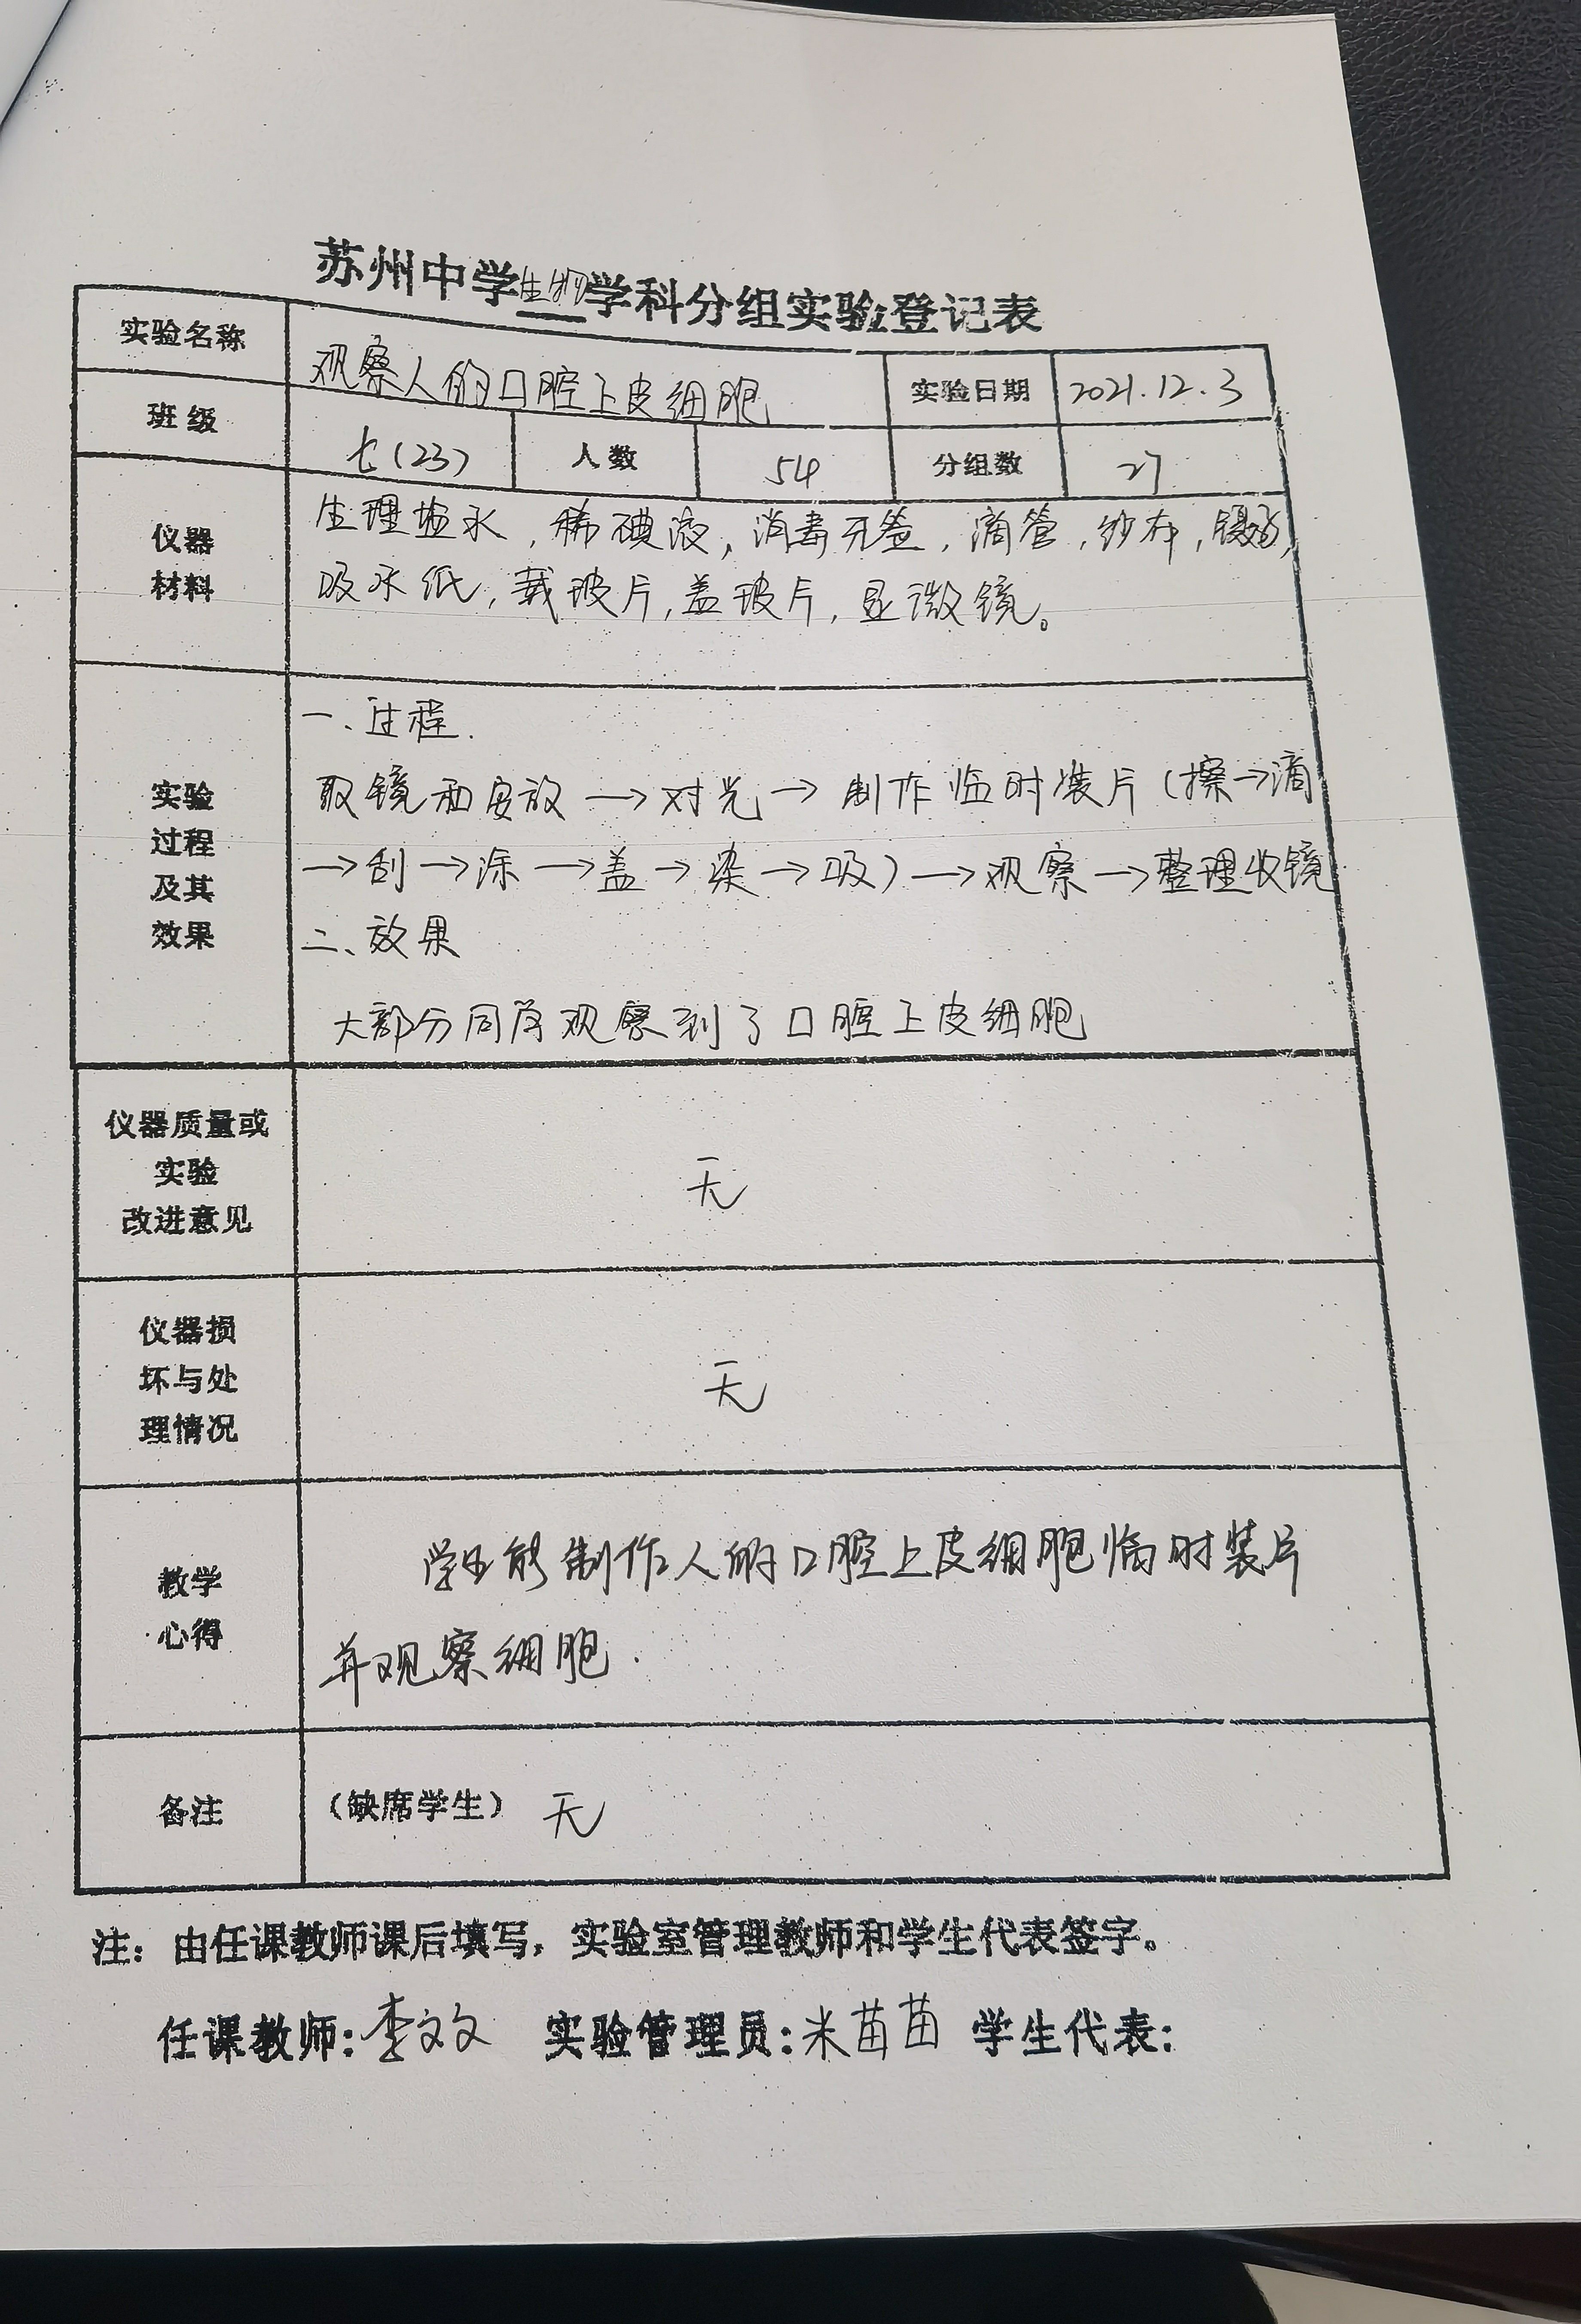 苏州中学生物学科分组实验登记表
实验名称 观察人的口腔上皮细胞 实验日期 2021.12.3
班级 七(23) 人数 54 分组数 27
仪器
材料
生理盐水,稀碘液,消毒牙签,滴管,纱布,镊子,
吸水纸,载玻片,盖玻片,显微镜。
实验
过程
及其
效果
一、过程.
取镜和安放→对光→制作临时装片(擦→滴
→刮→涂→盖→染→吸)→观察→整理收镜
二、效果
大部分同学观察到了口腔上皮细胞
仪器质量或
实验
改进意见
无
仪器损
坏与处
理情况
无
教学
心得
学生能制作人的口腔上皮细胞临时装片
并观察细胞.
备注 (缺席学生) 无
注:由任课教师课后填写,实验室管理教师和学生代表签字。
任课教师:李文文 实验管理员:米苗苗 学生代表: